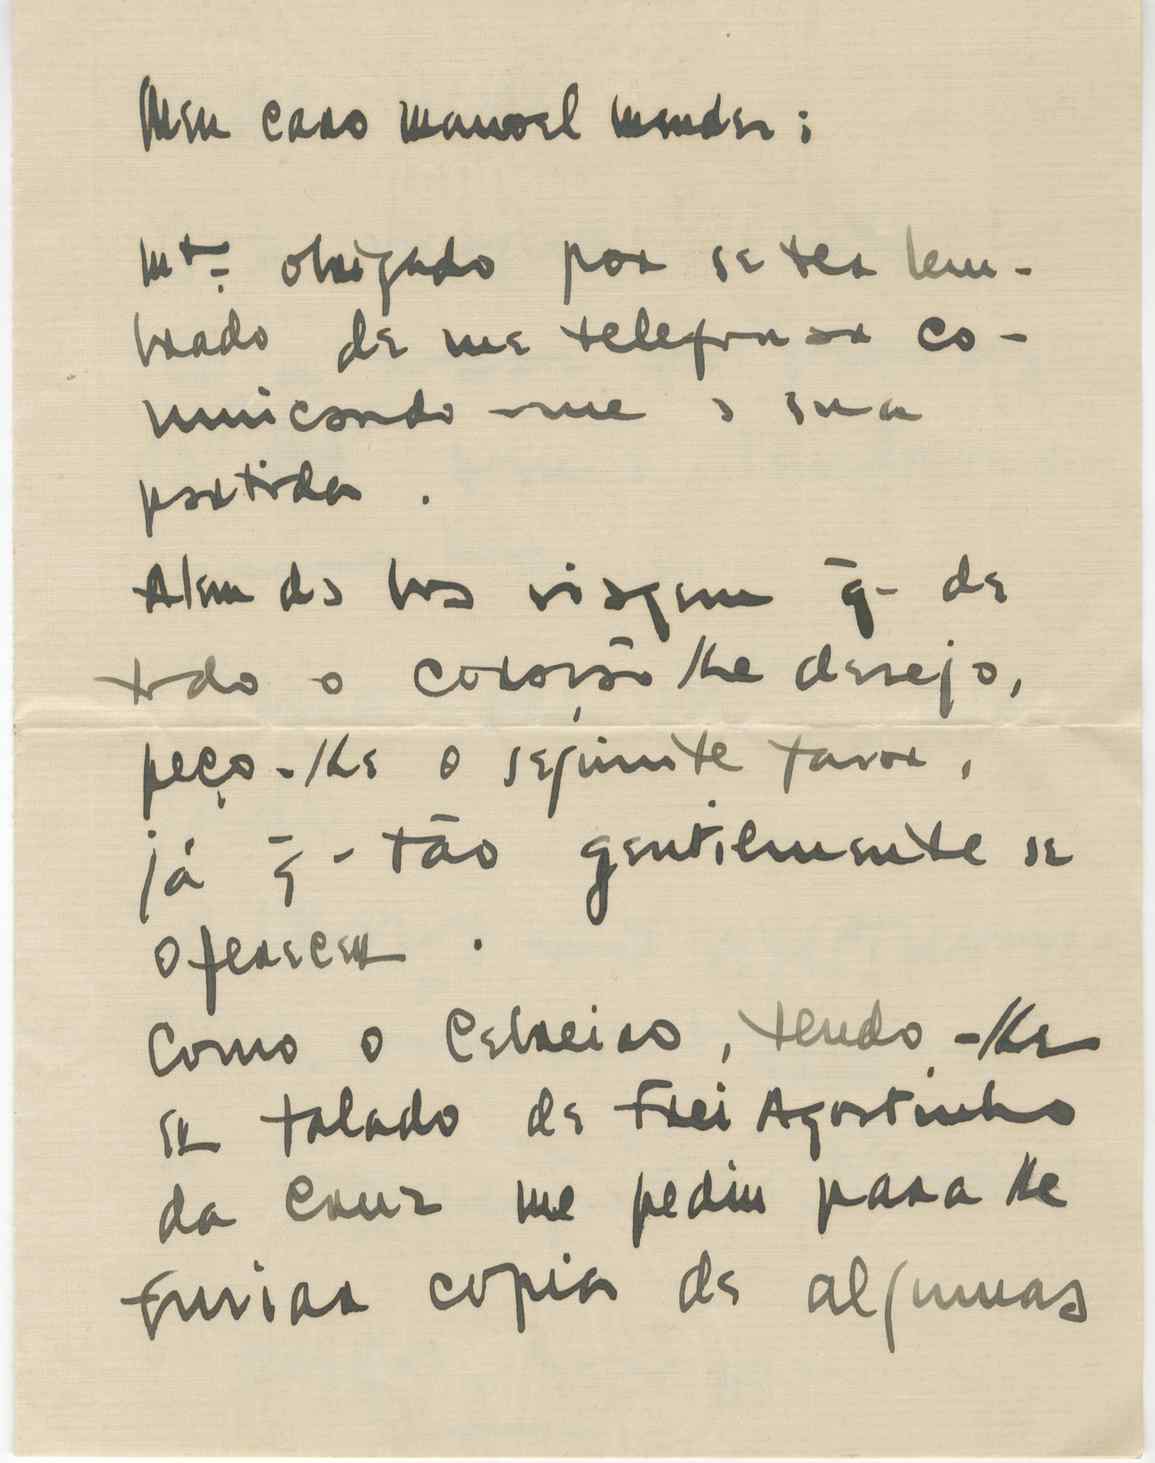 Meu caro Manoel Mendes:
Mto. obrigado por se ter lem-
brado de me telefonar co-
municando-me a sua
partida.
Alem da boa viagem q̄- de
todo o coração lhe desejo,
peço-lhe o seguinte favor,
já q̄- tão gentilmente se
ofereceu.
Como o Cebreiro, tendo-lhe
eu falado de Frei Agostinho
da Cruz me pediu para lhe
enviar copia de algumas